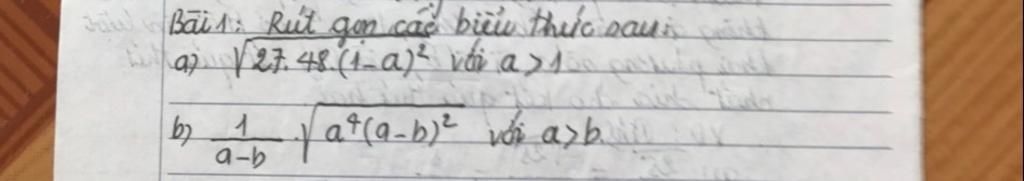 Bài 1: Rút gọn các biểu thức sau:
a) √27.48.(1-a)² với a > 1
b) 1/(a-b) . √a⁴(a-b)² với a > b.